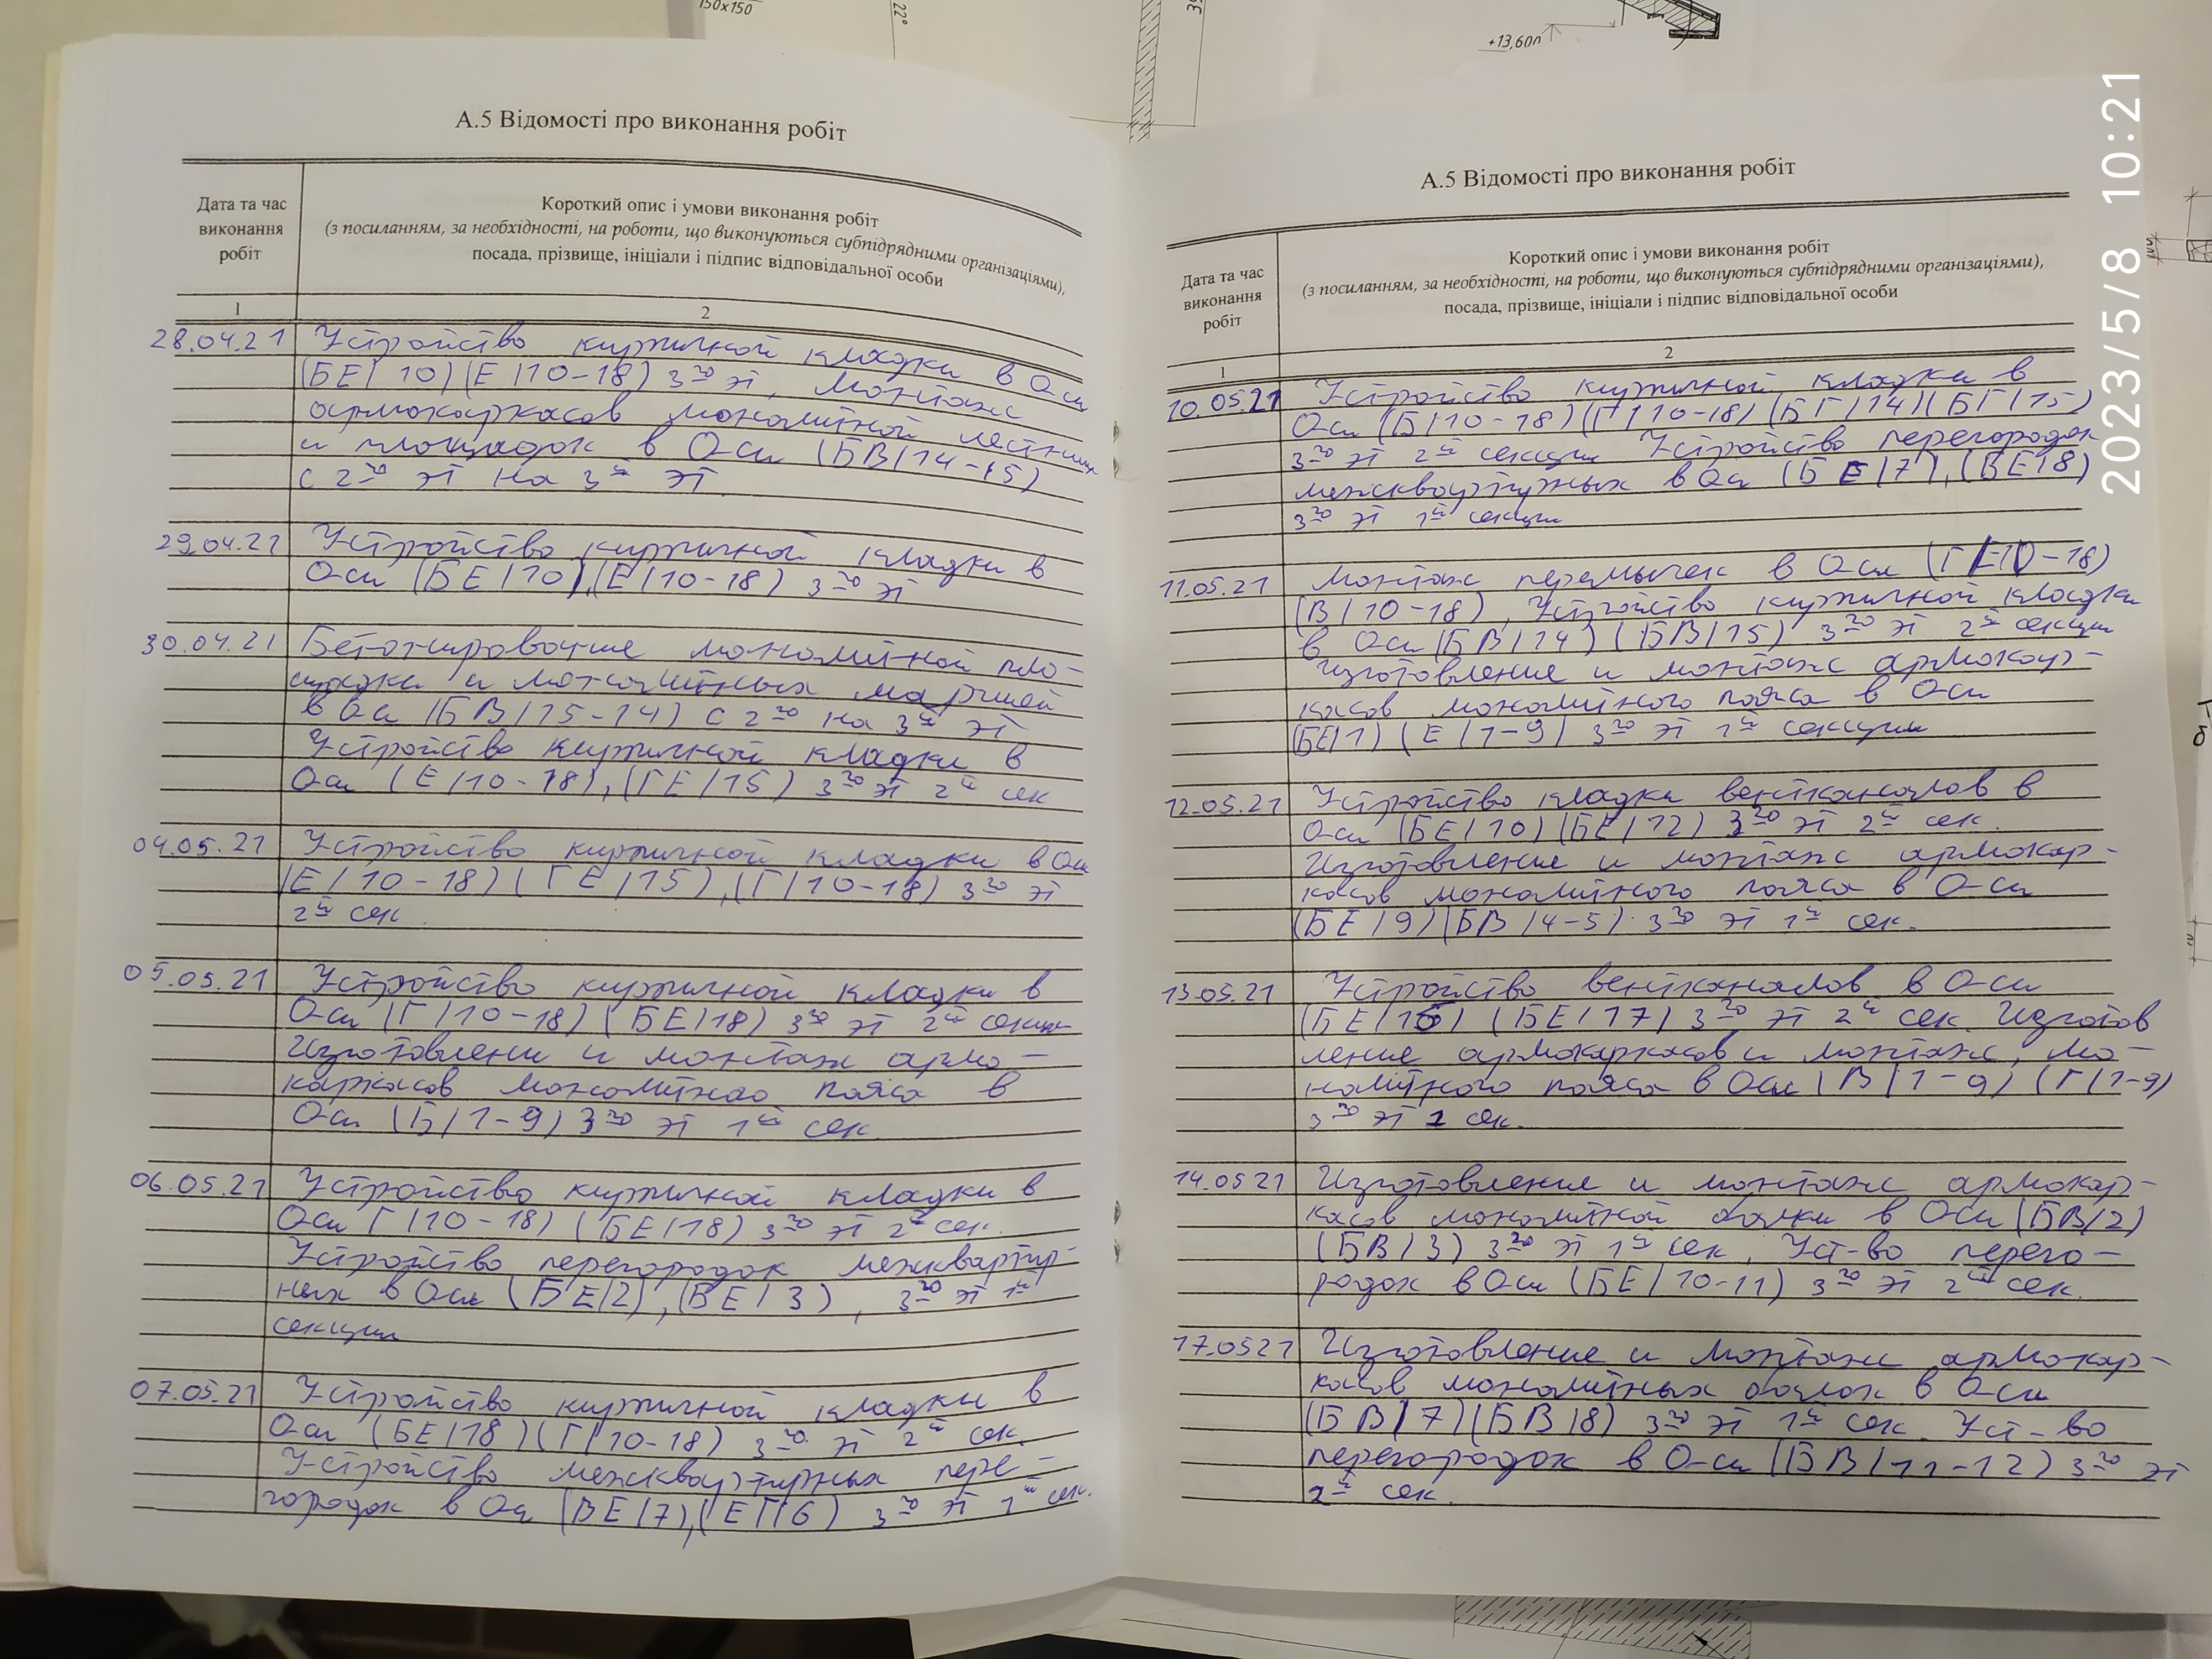 150x150
22°
+13,600
2023/5/8 10:21
А.5 Відомості про виконання робіт
Дата та час
виконання
робіт
Короткий опис і умови виконання робіт
(з посиланням, за необхідності, на роботи, що виконуються субпідрядними організаціями),
посада, прізвище, ініціали і підпис відповідальної особи
1
2
28.04.21 Устройство кирпичной кладки в Оси
(БЕ/10) (Е/10-18) 3го эт, Монтаж
армокаркасов монолитной лестницы
и площадок в Оси (БВ/14-15)
с 2го эт на 3й эт.
29.04.21 Устройство кирпичной кладки в
Оси (БЕ/10), (Е/10-18) 3го эт
30.04.21 Бетонировочние монолитной пло-
щадки и монолитных маршей
в Оси (БВ/15-14) с 2го на 3й эт
Устройство кирпичной кладки в
Оси (Е/10-18), (ГЕ/15) 3го эт 2й сек
04.05.21 Устройство кирпичной кладки в Оси
(Е/10-18) (ГЕ/15), (Г/10-18) 3го эт
2й сек.
05.05.21 Устройство кирпичной кладки в
Оси (Г/10-18) (БЕ/18) 3го эт 2й секции
Изготовлени и монтаж армо-
каркасов монолитного пояса в
Оси (Б/1-9) 3го эт 1й сек.
06.05.21 Устройство кирпичной кладки в
Оси Г/10-18) (БЕ/18) 3го эт 2й сек.
Устройство перегородок межквартир-
ных в Оси (БЕ/2), (ВЕ/3), 3го эт 1й
секции
07.05.21 Устройство кирпичной кладки в
Оси (БЕ/18) (Г/10-18) 3го эт 2й сек.
Устройство межквартирных пере-
городок в Оси (ВЕ/7), (ЕГ/6) 3го эт 1й сек.
А.5 Відомості про виконання робіт
Дата та час
виконання
робіт
Короткий опис і умови виконання робіт
(з посиланням, за необхідності, на роботи, що виконуються субпідрядними організаціями),
посада, прізвище, ініціали і підпис відповідальної особи
1
2
10.05.21 Устройство кирпичной кладки в
Оси (Б/10-18) (Г/10-18) (БГ/14) (БГ/15)
3го эт 2й секции Устройство перегородок
межквартирных в Оси (БЕ/7), (ВЕ/8)
3го эт 1й секции
11.05.21 Монтаж перемычек в Оси (Г/Е10-18)
(В/10-18), Устройство кирпичной кладки
в Оси (БВ/14) (БВ/15) 3го эт 2й секции
Изготовление и монтаж армокар-
касов монолитного пояса в Оси
(БЕ/1) (Е/1-9) 3го эт 1й секции
12.05.21 Устройство кладки вентканалов в
Оси (БЕ/10) (БЕ/12) 3го эт 2й сек.
Изготовление и монтаж армокар-
касов монолитного пояса в Оси
(БЕ/9) (БВ/4-5) 3го эт 1й сек.
13.05.21 Устройство вентканалов в Оси
(БЕ/16) (БЕ/17) 3го эт 2й сек. Изготов
ление армокаркасов и монтаж, мо-
нолитного пояса в Оси (В/1-9) (Г/1-9)
3го эт 1 сек.
14.0521 Изготовление и монтаж армокар-
касов монолитной балки в Оси (БВ/2)
(БВ/3) 3го эт 1й сек, Уст-во перего-
родок в Оси (БЕ/10-11) 3го эт 2й сек.
17.0521 Изготовление и монтаж армокар-
касов монолитных балок в Оси
(БВ/7) (БВ/8) 3го эт 1й сек. Уст-во
перегородок в Оси (БВ/11-12) 3го эт
2й сек.